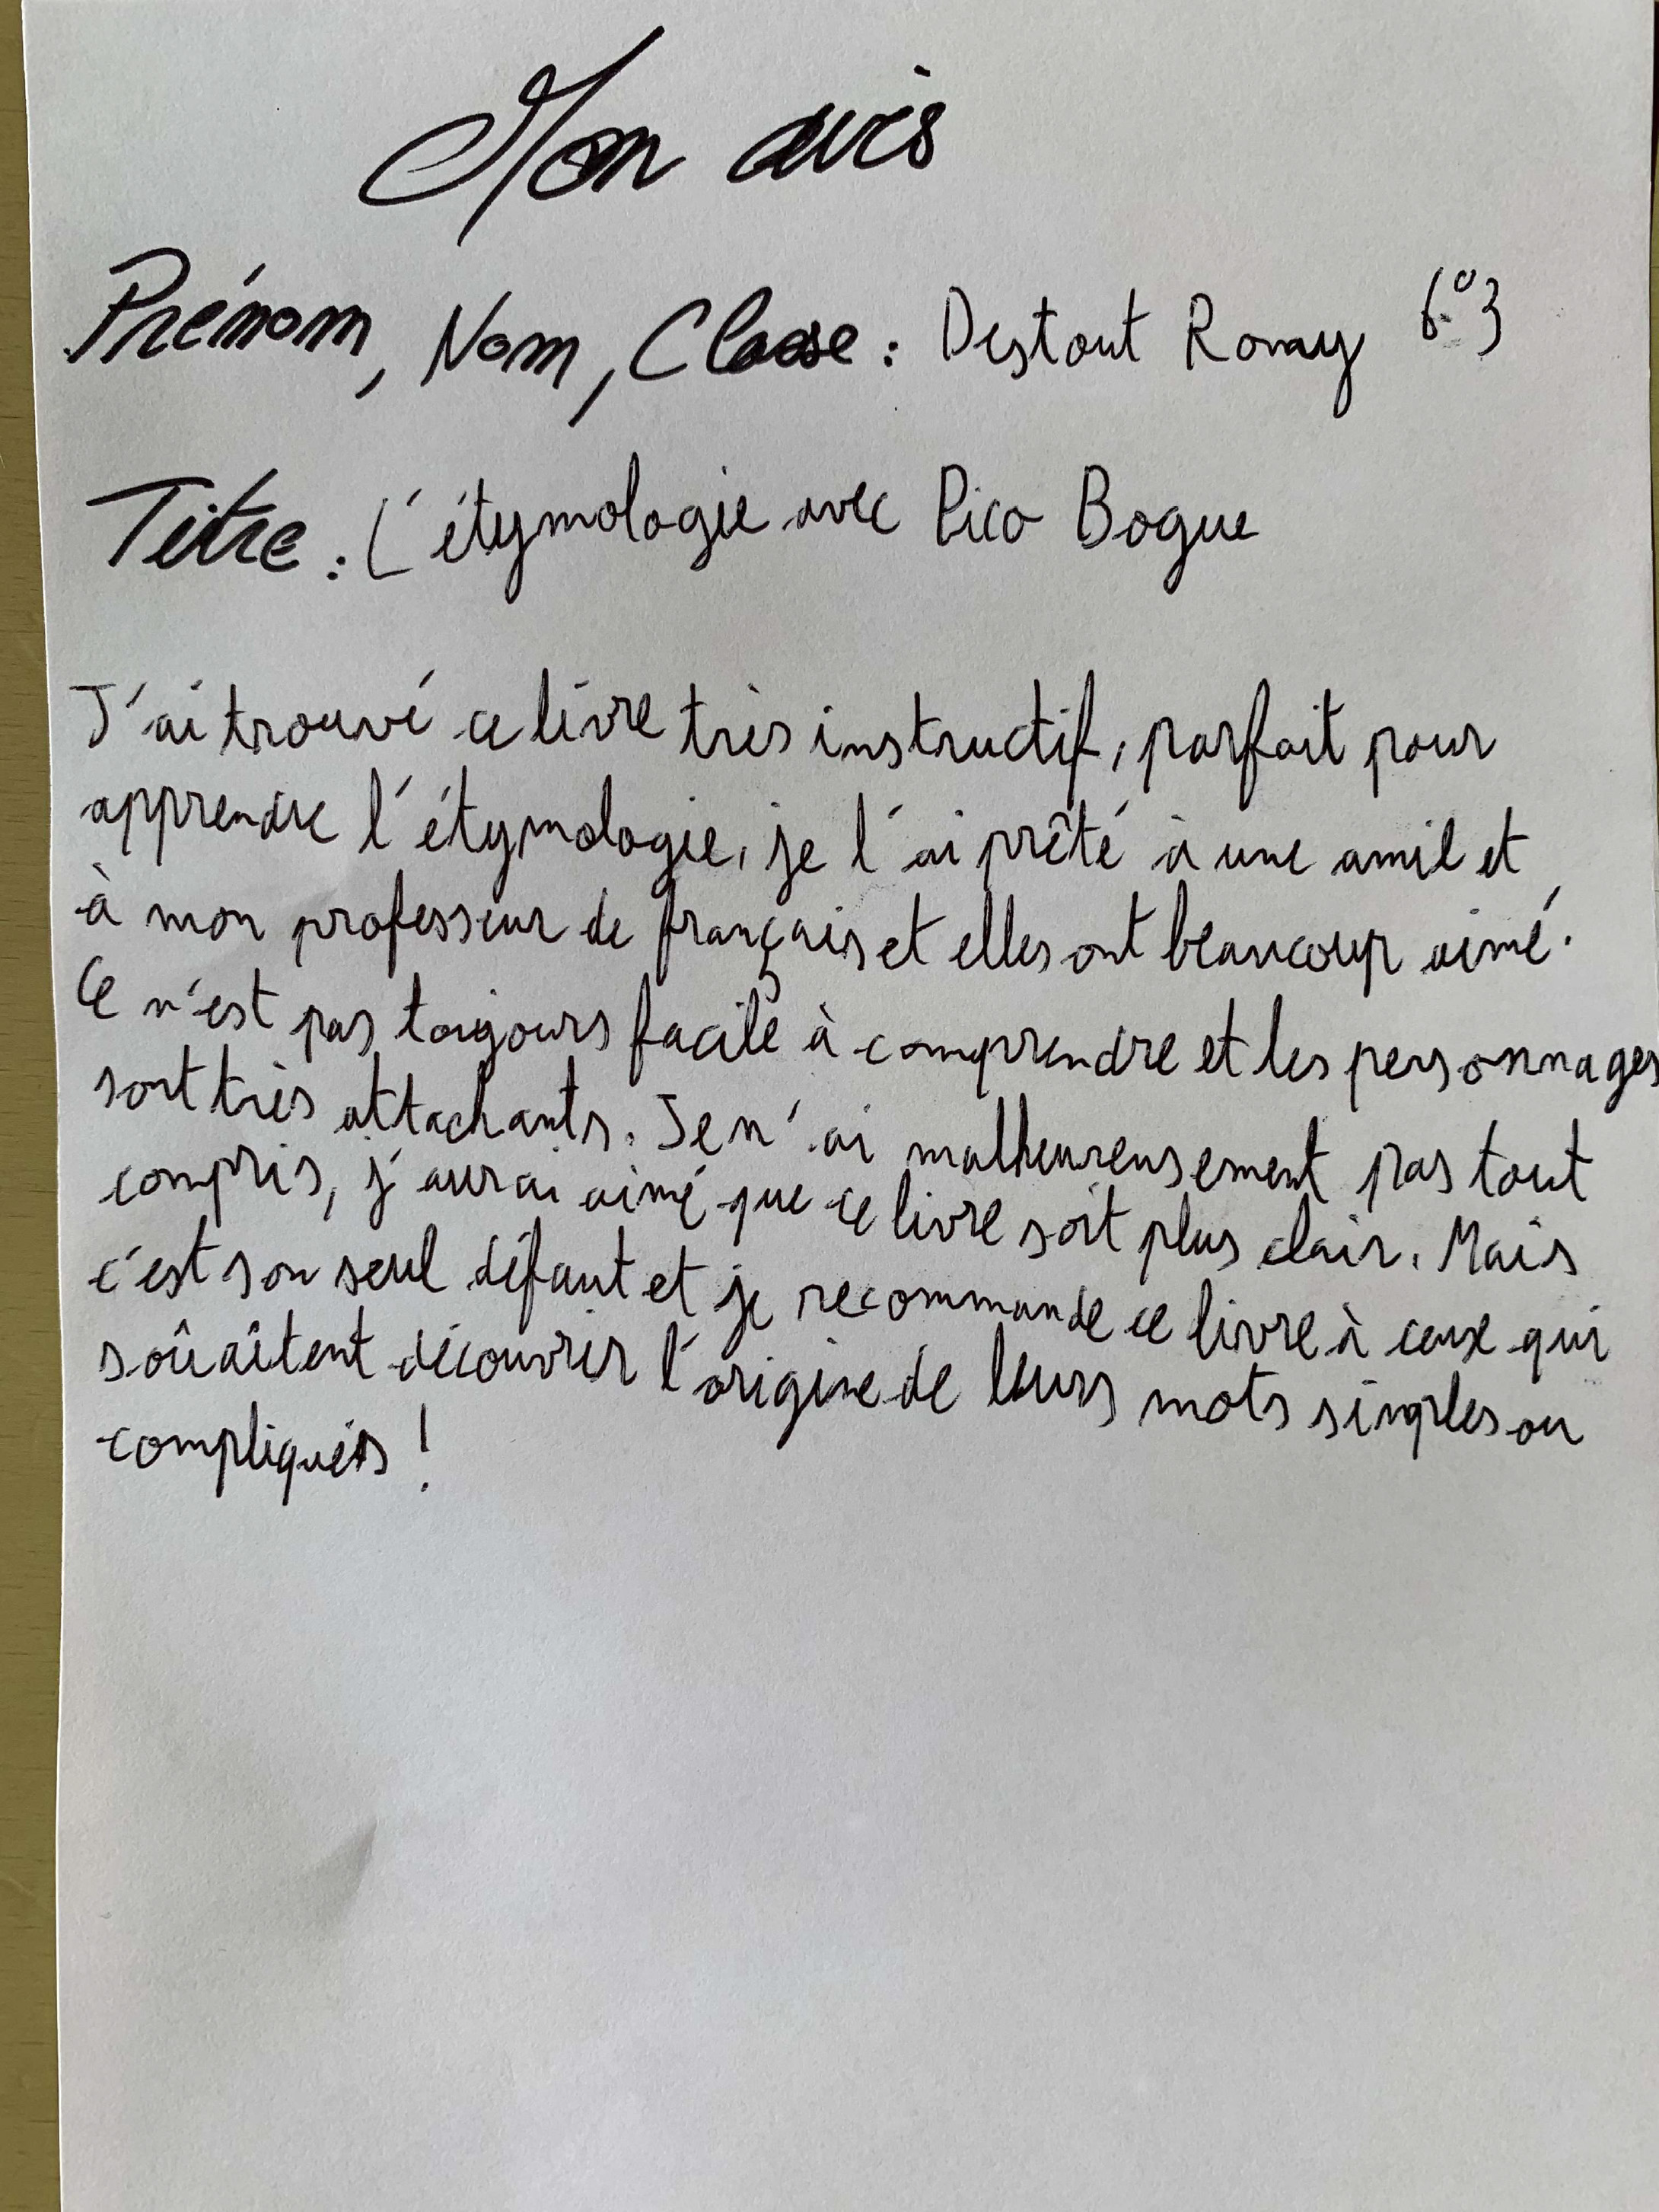 Mon avis
Prénom, Nom, Classe : Destout Romy 6°3
Titre : L'étymologie avec Pico Bogue
J'ai trouvé ce livre très instructif, parfait pour
apprendre l'étymologie, je l'ai prêté à une amie et
à mon professeur de français et elles ont beaucoup aimé.
Ce n'est pas toujours facile à comprendre et les personnages
sont très attachants. Je n'ai malheureusement pas tout
compris, j'aurai aimé que ce livre soit plus clair. Mais
c'est son seul défaut et je recommande ce livre à ceux qui
soûaîtent découvrir l'origine de leurs mots simples ou
compliqués !